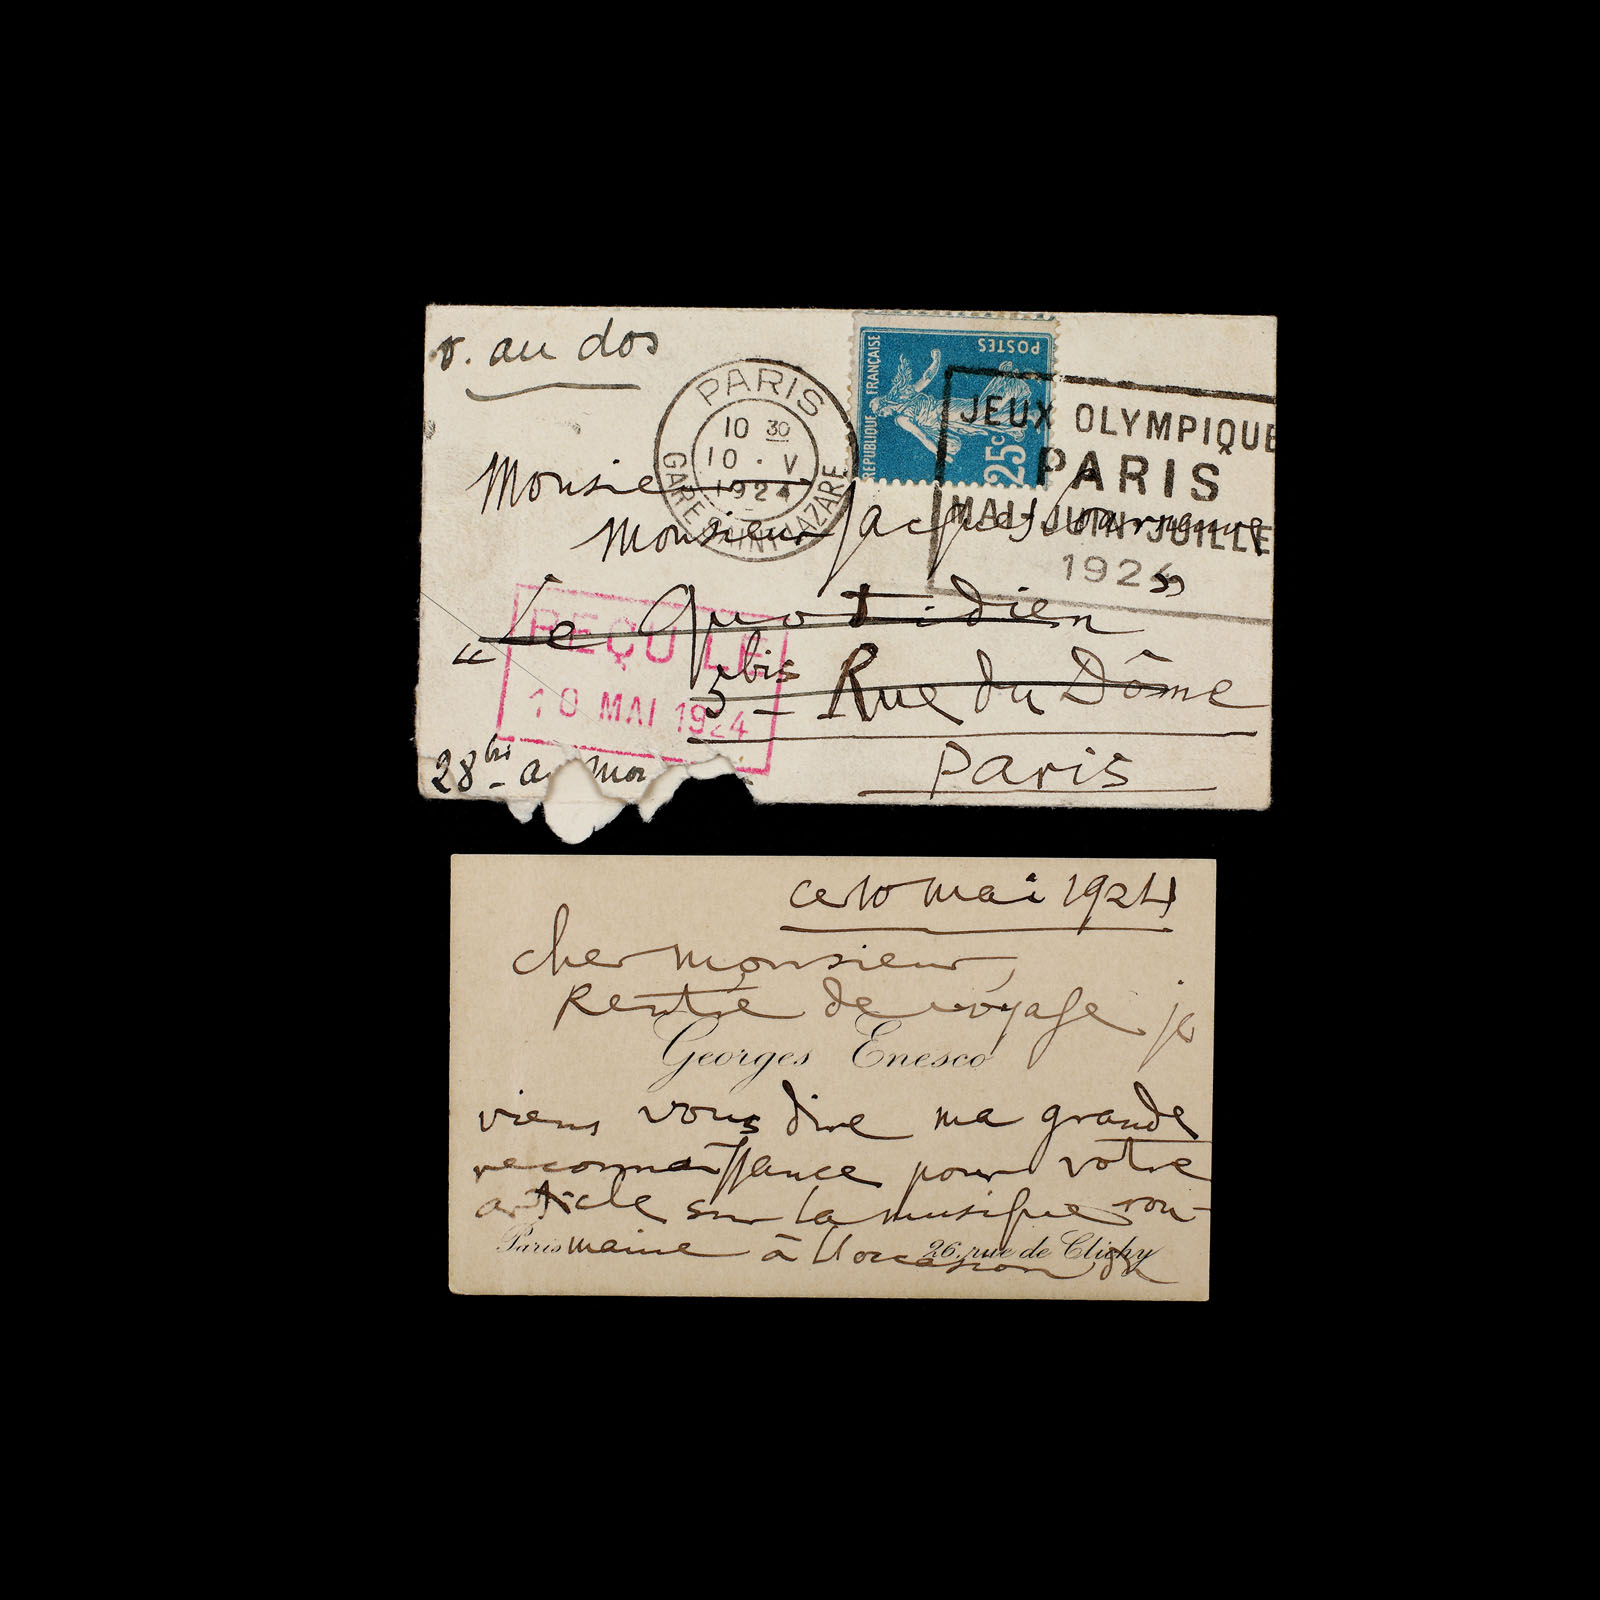 v. au dos
PARIS
10 30
10 · V
1924
GARE SAINT-LAZARE
REPUBLIQUE FRANÇAISE
POSTES
25c
JEUX OLYMPIQUE
PARIS
MAI JUIN JUILLE
1924
Monsie
Monsieur Jacques
"Le Quotidien"
5 bis Rue du Dôme
Paris
REÇU LE
10 MAI 1924
28 bis
ce 10 mai 1924
cher Monsieur,
Rentré de voyage je
Georges Enesco
viens vous dire ma grande
reconnaissance pour votre
article sur la musique rou-
maine à l'occasion de
Paris
26, rue de Clichy